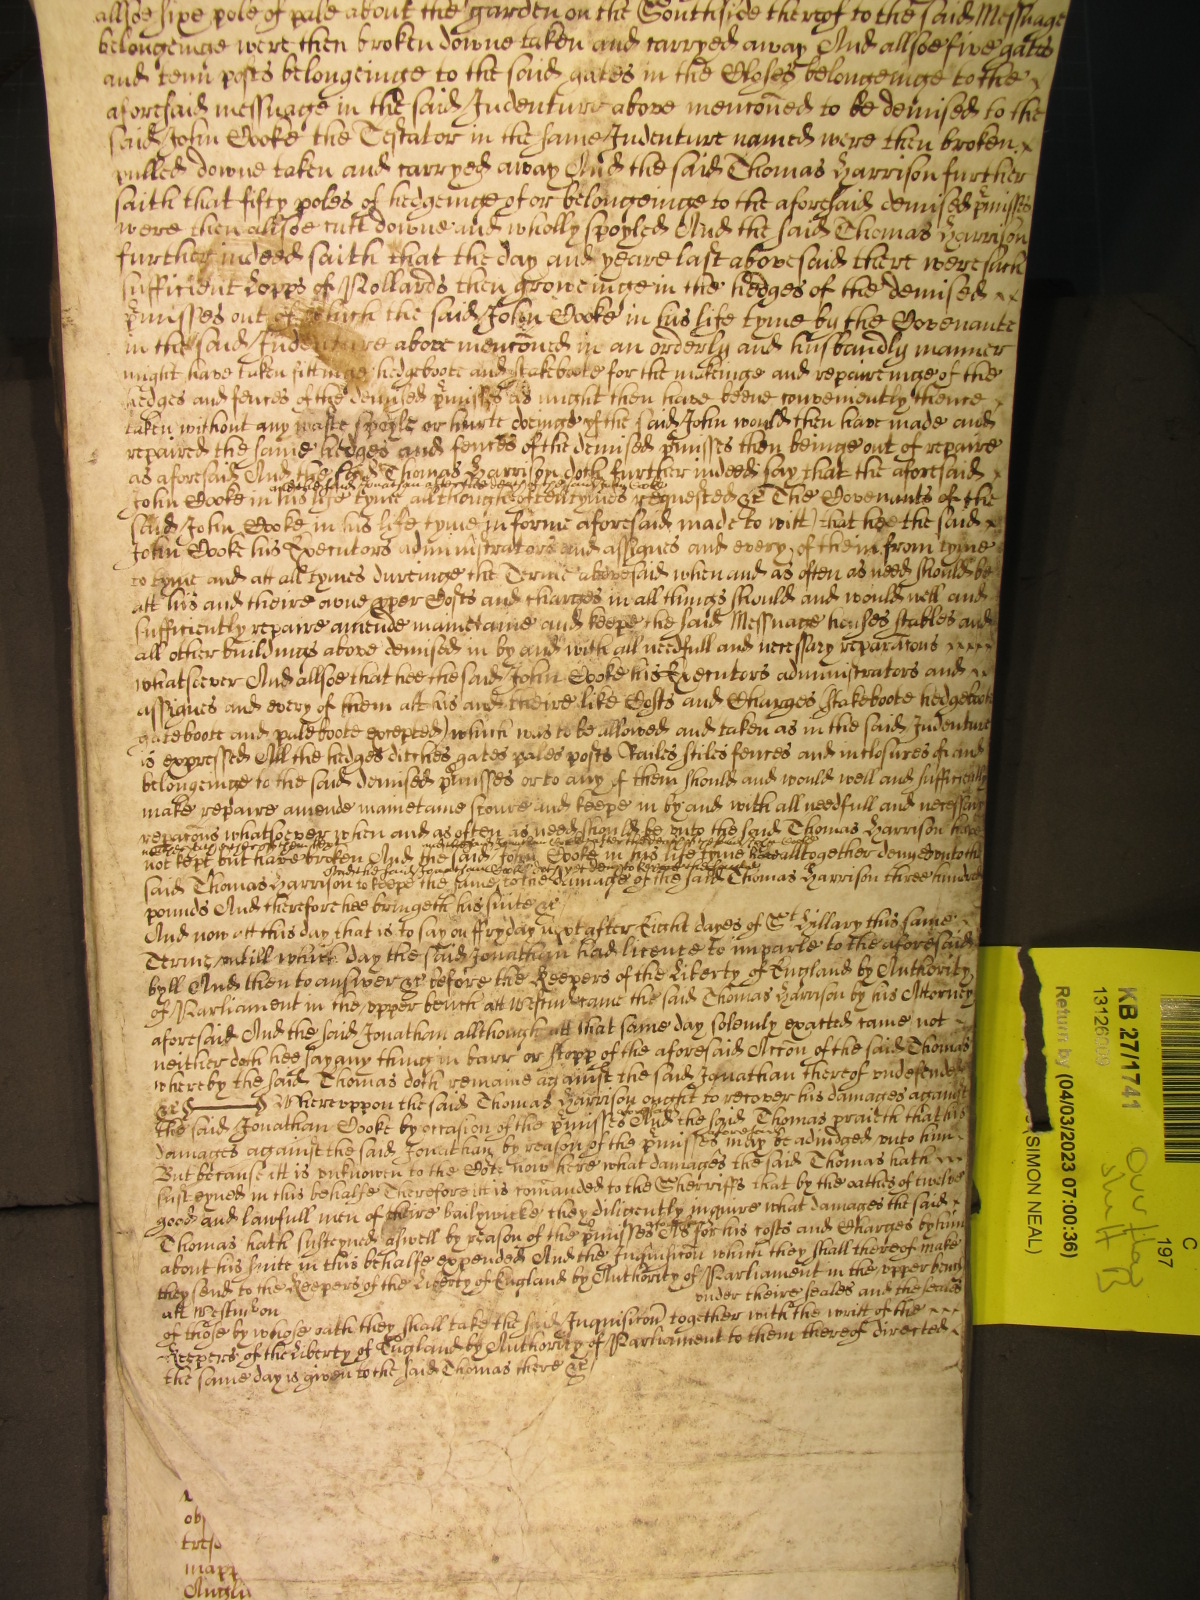 allsoe sixe pole of pale about the garden on the Southside thereof to the said Messuage
belongeinge were then broken downe taken and carryed away And allsoe five gates
and tenn posts belongeinge to the said gates in the Closes belongeinge to the
aforesaid messuage in the said Indenture above menconed to be demised to the
said John Cooke the Testator in the same Indenture named were then broken
pulled downe taken and carryed away And the said Thomas Harrison further
saith that fifty poles of hedgeinge of or belongeinge to the aforesaid demised pmisses
were then allsoe cutt downe and wholly spoyled And the said Thomas Harrison
further indeed saith that the day and yeare last abovesaid there were such
sufficient Lopps of Pollards then groweinge in the hedges of the demised
pmisses out of which the said John Cooke in his life tyme by the Covenante
in the said Indenture above menconed in an orderly and husbandly manner
might have taken fittinge hedgboote and stakeboote for the makeinge and repaireinge of the
hedges and fences of the demised pmisses as might then have beene conveniently thence
taken without any waste spoyle or hurte doeinge yf the said John would then have made and
repaired the same hedges and fences of the demised pmisses then beinge out of repaire
as aforesaid And the said Thomas Harrison doth further indeed say that the aforesaid
and the said Jonathan after the death of the said John Cooke
John Cooke in his life tyme although oftentymes requested &c The Covenants of the
said John Cooke in his life tyme in forme aforesaid made (to witt) that hee the said
John Cooke his Executors administrators and assignes and every of them from tyme
to tyme and att all tymes dureinge the Terme abovesaid when and as often as need should be
att his and theire owne pper Costs and charges in all things should and would well and
sufficiently repaire amende mainetaine and keepe the said Messuage houses stables and
all other buildings above demised in by and with all needfull and necessary reparacons
whatsoever And allsoe that hee the said John Cooke his Executors administrators and
assignes and every of them att his and theire like Costs and Charges (stakeboote hedgeboote
gateboote and paleboote excepted) which was to be allowed and taken as in the said Indenture
is expressed All the hedges ditches gates pales posts Railes stiles fences and inclosures of and
belongeinge to the said demised pmisses or to any of them should and would well and sufficiently
make repaire amende mainetaine scoure and keepe in by and with all needfull and necessary
reparacons whatsoever when and as often as need should be unto the said Thomas Harrison have
not kept but have broken And the said John Cooke in his life tyme have alltogether denyed unto the
said Thomas Harrison to keepe the same to the damage of the said Thomas Harrison three hundred
pounds And therefore hee bringeth his suite &c
And now att this day that is to say on ffryday next after Eight dayes of St Hillary this same
Terme untill which day the said Jonathan had licence to imparle to the aforesaid
byll And then to answer &c before the Keepers of the Liberty of England by Authority
of Parliament in the upper bench att Westm came the said Thomas Harrison by his Attorney
aforesaid And the said Jonathan allthough att that same day solemly exacted came not
neither doth hee say any thing in barr or stopp of the aforesaid Accon of the said Thomas
whereby the said Thomas doth remaine against the said Jonathan thereof undefended
&c Whereuppon the said Thomas Harrison ought to recover his damages against
the said Jonathan Cooke by occasion of the pmisses And the said Thomas praieth that his
damages against the said Jonathan by reason of the pmisses may be adiudged unto him
But because itt is unknowen to the Cote now here what damages the said Thomas hath
susteyned in this behalfe Therefore it is comanded to the Sherriffs that by the oathes of twelve
good and lawfull men of theire bailywicke they diligently inquire what damages the said
Thomas hath susteyned aswell by reason of the pmisses as for his costs and Charges by him
about his suite in this behalfe expended And the Inquisicon which they shall thereof make
they send to the Keepers of the Liberty of England by Authority of Parliament in the upper bench
att Westm on under theire seales and the seales
of those by whose oath they shall take the said Inquisicon together with the writt of the
Keepers of the Liberty of England by Authority of Parliament to them thereof directed
the same day is given to the said Thomas there &c
KB 27/1741
13126069
Return by (04/03/2023 07:00:36)
SIMON NEAL)
C
197